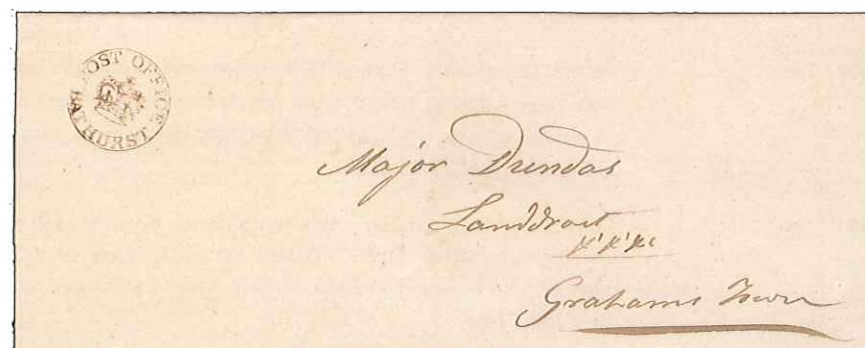 POST OFFICE
BATHURST
Major Dundas
Landdrost
&c &c &c
Grahams Town